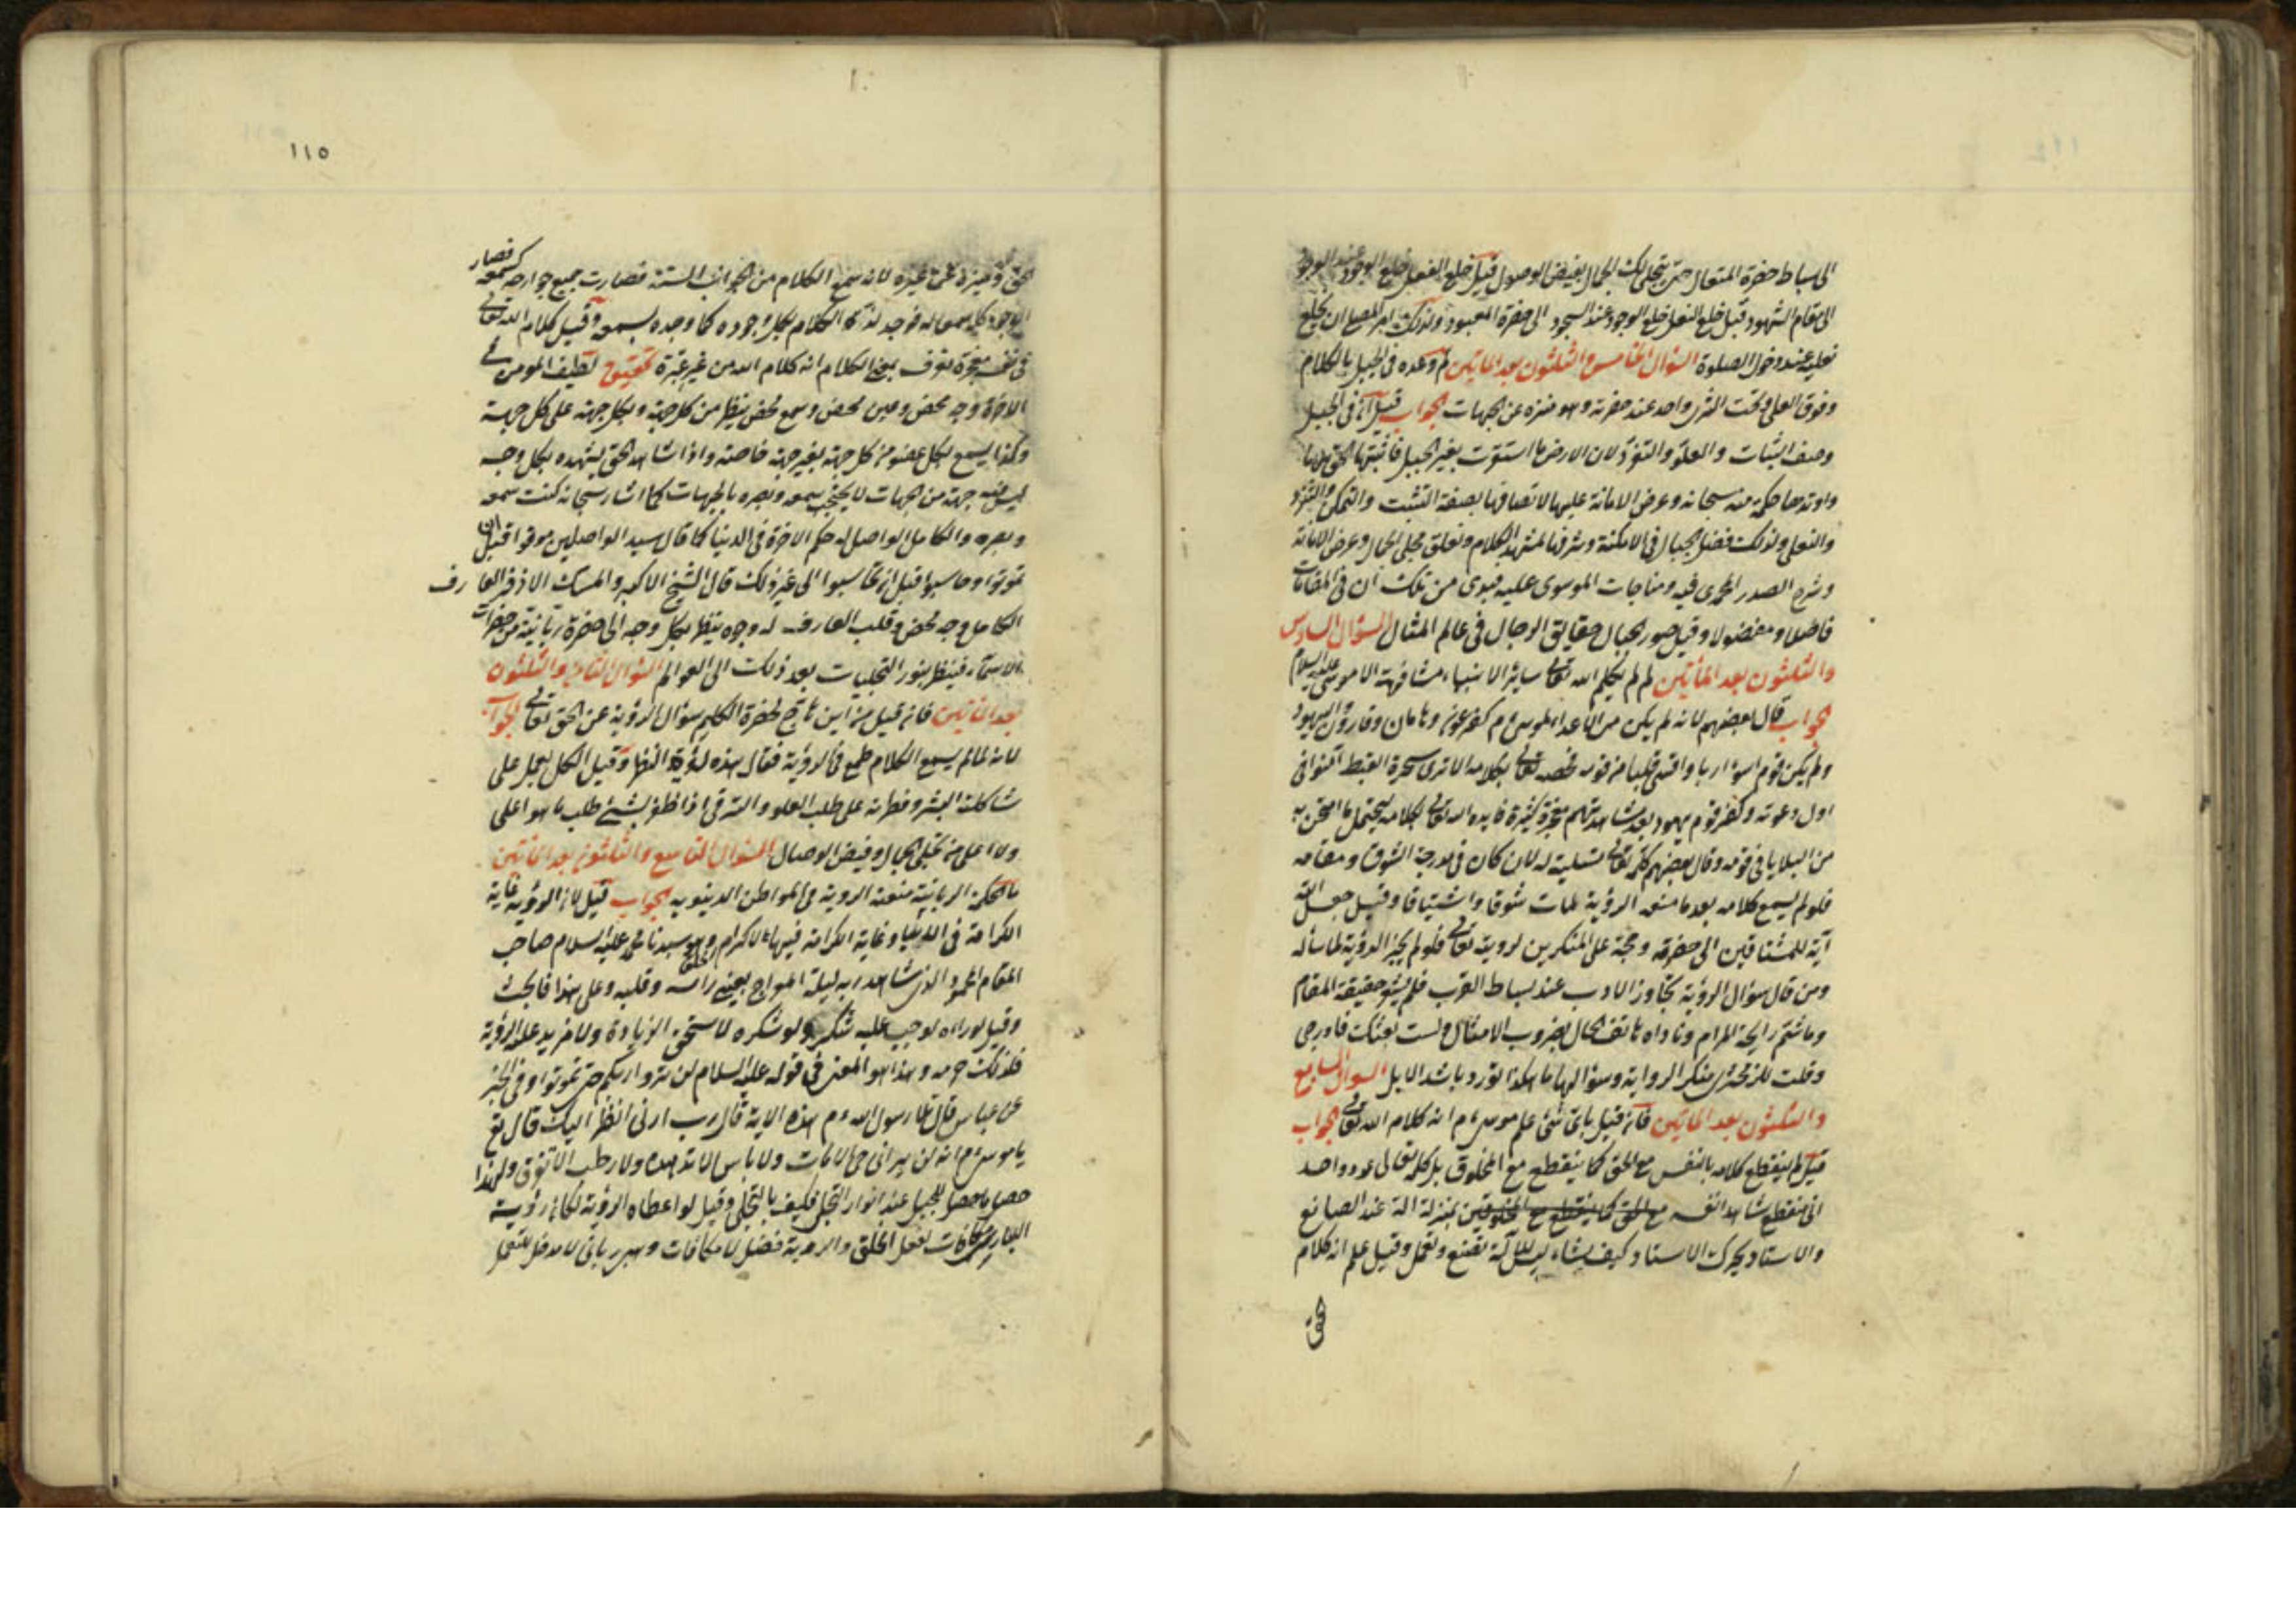 الى بساط حضرة المتعال حتى يتجلى لك الجمال بفيض الوصول قيل خلع الفعل خلع الوجود عند الوجود
الى مقام الشهود قيل خلع النعل خلع الوجود عند السجود الى حضرة المعبود ولذلك امر المصلى ان يخلع
نعليه عند دخول الصلوة السؤال الخامس والثلثون بعد الماتين لم وعده فى الجبل بالكلام
وفوق العلى وتحت الثرى واحد عند حضرته وهو منزه عن الجهات الجواب قيل لان فى الجبل
وصف الثبات والعلو والتفرد لان الارض ما استقرت بغير الجبل فاثبتها الحق بها
واوتدها حكمة منه سبحانه وعرض الامانة عليها لاتصافها بصفة التثبت والتمكن والتفرد
والتعلى ولذلك فضل الجبال فى الامكنة وشرفها لمشهد الكلام وتعلق تجلى الجمال وعرض الامانة
وشرح الصدر المحمدى فيه ومناجات الموسوى عليه فبدى من تلك ان فى المقامات
فاضلا ومفضولا وقيل صور الجبال حقايق الرجال فى عالم المثال السؤال السادس
والثلثون بعد الماتين لم لم يكلم الله تعالى سائر الانبياء مشافهة الا موسى عليه السلام
الجواب قال بعضهم لانه لم يكن من الاعداء لموسى م كفرعون وهامان وقارون واليهود
ولم يكن قوم اسوأ ادبا واقسى قلبا من قومه فخصه تعالى بكلامه الا ترى سحرة القبط آمنوا فى
اول دعوته وكفر قوم يهود بعد مشاهدتهم معجزة كثيرة فايده الله تعالى بكلامه ليحتمل ما امتحن به
من البلايا فى قومه وقال بعضهم كلمه تعالى تسلية له لان كان فى درجة الشوق ومقامه
فلو لم يسمع كلامه بعد ما منعه الرؤية لمات شوقا واشتياقا وقيل جعل الله
آية للمشتاقين الى حضرته وحجة على المنكرين لرويته تعالى فلو لم يجز الرؤية لما سأله
ومن قال سؤال الرؤية تجاوز الادب عند بساط القرب فلم يشهد حقيقة المقام
وما شم رايحة المرام وناداه هاتف الحال بضروب الامثال لست بعشك فادرجى
وقلت للزمخشرى منكر الرواية وسؤالها ما هكذا تورد يا سعد الابل السؤال السابع
والثلثون بعد الماتين فان قيل باى شئ علم موسى م انه كلام الله تعالى الجواب
قيل لم ينقطع كلامه بالنفس مع الحق كما ينقطع مع المخلوق بل كلمه تعالى بمدد واحد
انى منقطع شاهد انفسه مع الحق كما ينقطع مع المخلوقين بمنزلة الة عند الصانع
والاستاد يحرك الاستاد كيف يشاء ليس للآلة تصنع وتعمل وقيل علم انه كلام
الحق
١١٥
الحق وميزه عن غيره لانه سمع الكلام من الجوانب الستة فصارت جميع جوارحه كسمعه فصار
الوجود كله سمعا له فوجد لذة الكلام بكل وجوده كما وجده بسمعه وقيل كلام الله تعالى
فى نفسه معجزة فعرف بمعنى الكلام انه كلام الله من غير عبرة تحقيق لطيف المؤمن فى
الاخرة وجه محض وعين محض وسمع محض ينظر من كل جهة وبكل جهة على كل جهة
وكذا يسمع بكل عضو من كل جهة بغير جهة خاصة واذا شاهد الحق يشهده بكل وجه
ليس فيه جهة من الجهات لا يحتجب سمعه وبصره بالجهات كما اشار سبحانه كنت سمعه
وبصره والكامل الواصل له حكم الاخرة فى الدنيا كما قال سيد الواصلين موتوا قبل ان
تموتوا وحاسبوا قبل ان تحاسبوا الى غير ذلك قال الشيخ الاكبر والمسك الاذفر العارف
الكامل وجه محض وقلب العارف له وجوه ينظر بكل وجه الى حضرة ربانية من حضرات
الاسماء فينظر بنور التجليات بعد ذلك الى العوالم السؤال الثامن والثلثون
بعد الماتين فان قيل من اين هاج لحضرة الكليم سؤال الرؤية عن الحق تعالى الجواب
لانه لما لم يسمع الكلام طمع فى الرؤية فقال هذه لذة النظر وقيل الكل يعمل على
شاكلته البشر وفطرته على طلب العلو والترقى اذا ظفر بشئ طلب ما هو اعلى
ولا اعلى من تجلى الجمال وفيض الوصال السؤال التاسع والثلثون بعد الماتين
ما الحكمة الربانية منعت الروية فى المواطن الدنيويه الجواب قيل لان الرؤية غاية
الكرامة فى الدنيا وغاية الكرامة فيها لاكرام الخلق وهو سيدنا محمد عليه السلام صاحب
المقام المحمود الذى شاهد ربه ليلة المعراج بعينى راسه وقلبه وعلى هذا فابحث
وقيل لو راه لوجب عليه شكر ولو شكره لاستحق الزيادة ولا مزيد على الرؤية
فلذلك حرمه وهذا هو المعنى فى قوله عليه السلام لن تروا ربكم حتى تموتوا وفى الخبر
عن عباس قال تلا رسول الله م هذه الاية قال رب ارنى انظر اليك قال تع
يا موسى م انه لن يرانى حى الا مات ولا يابس الا تدهده ولا رطب الا تفرق ولهذا
حصل ما حصل للجبل عند انوار التجلى فكيف بالتجلى وقيل لو اعطاه الرؤية لكان رؤية
البارى مكافات لفعل الخلق والروية فضل لا مكافات وسر ربانى لا مدخل للتعمل